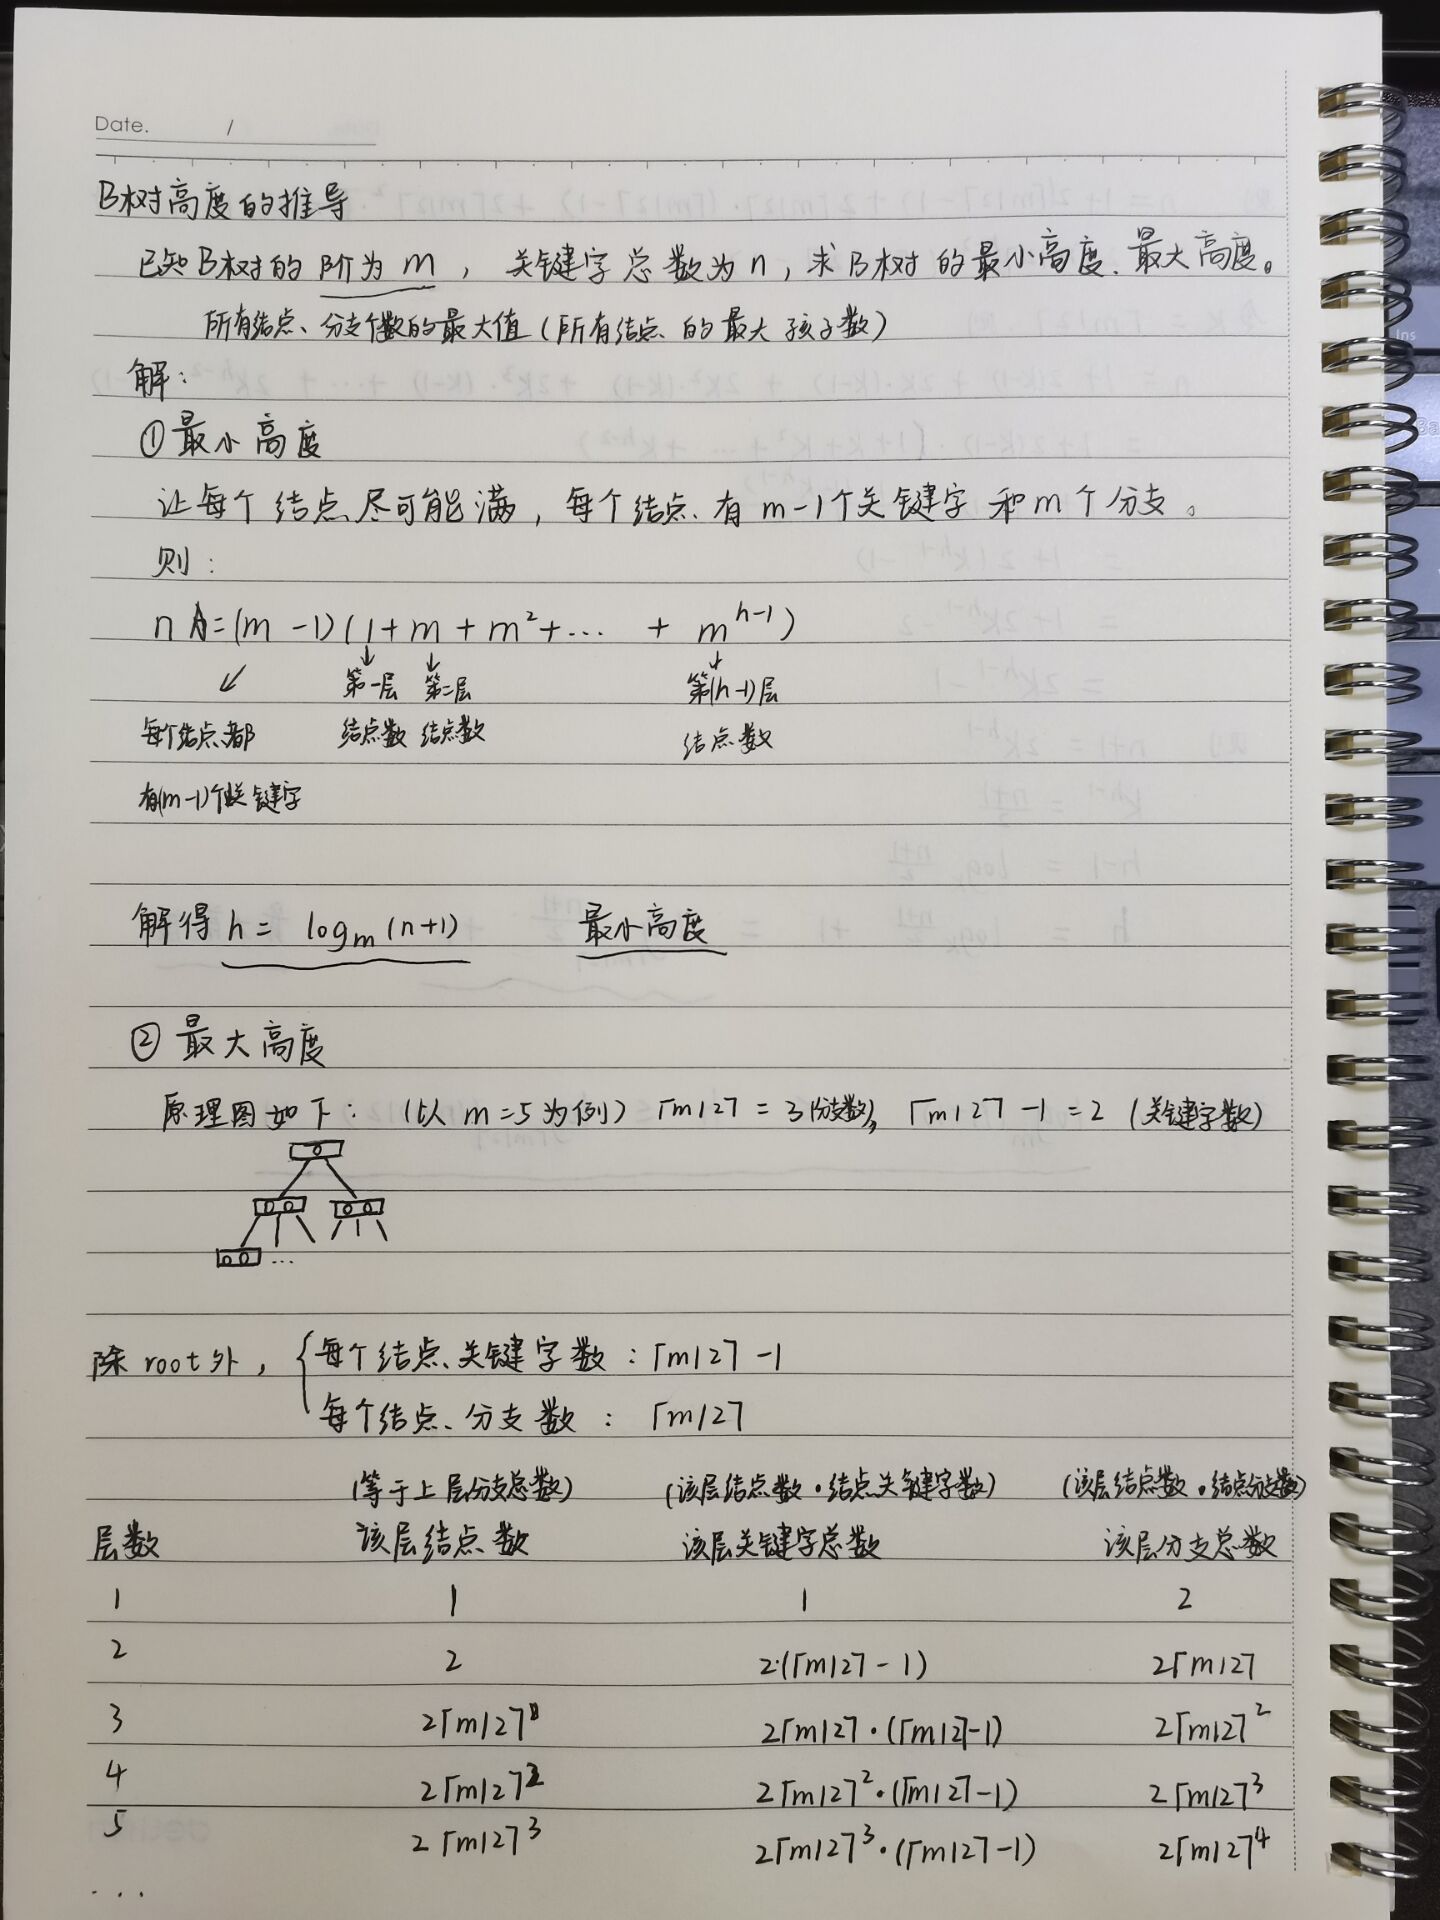 Date. /
B树高度的推导
已知B树的阶为m，关键字总数为n，求B树的最小高度、最大高度。
所有结点、分支个数的最大值（所有结点的最大孩子数）
解：
①最小高度
让每个结点尽可能满，每个结点有m-1个关键字和m个分支。
则：
n = (m-1)(1+m+m²+… + m^(h-1))
↙ 第一层 第二层 第(h-1)层
每个结点都 结点数 结点数 结点数
有(m-1)个关键字
解得 h = logₘ(n+1) 最小高度
②最大高度
原理图如下：（以m=5为例）⌈m/2⌉ = 3(分支数)，⌈m/2⌉-1=2（关键字数）
...
除root外，{每个结点关键字数：⌈m/2⌉-1
每个结点、分支数：⌈m/2⌉
（等于上层分支总数） （该层结点数·结点关键字数） （该层结点数·结点分支数）
层数 该层结点数 该层关键字总数 该层分支总数
1 1 1 2
2 2 2·(⌈m/2⌉-1) 2⌈m/2⌉
3 2⌈m/2⌉ 2⌈m/2⌉·(⌈m/2⌉-1) 2⌈m/2⌉²
4 2⌈m/2⌉² 2⌈m/2⌉²·(⌈m/2⌉-1) 2⌈m/2⌉³
5 2⌈m/2⌉³ 2⌈m/2⌉³·(⌈m/2⌉-1) 2⌈m/2⌉⁴
...